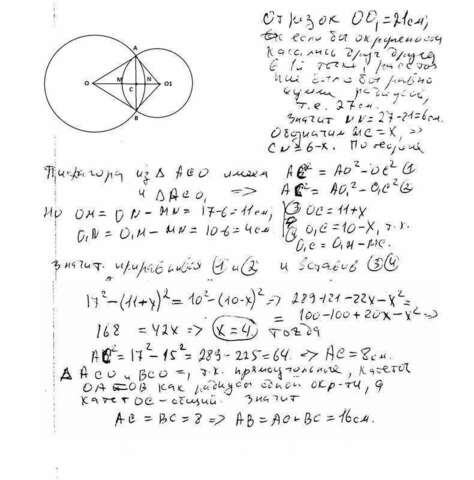 A
O M C N O1
B
Отрезок OO₁ = 21см;
если бы окружности
касались друг друга
в 1й точке, расстоя
ние было бы равно
сумме радиусов,
т.е. 27см.
Значит MN = 27-21=6см.
Обозначим MC = x, ⇒
CN = 6-x. По теореме
Пифагора из △ ACO имеем AC² = AO² - OC² ①
и △ACO₁ ⇒ AC² = AO₁² - O₁C² ②
③ OC = 11+x
Но OM = ON - MN = 17-6 = 11см;
④ O₁C = 10-x, т.к.
O₁N = O₁M - MN = 10-6 = 4см
O₁C = O₁M - MC.
Значит приравняв ① и ② и вставив ③④
17² - (11+x)² = 10² - (10-x)² ⇒ 289-121-22x-x² =
= 100-100+20x-x² ⇒
168 = 42x ⇒ x=4, тогда
AC² = 17² - 15² = 289-225 = 64. ⇒ AC = 8см.
△ ACO и BCO =, т.к. прямоугольные, катеты
OA=OB как радиусы одной окр-ти, а
катет OC - общий. Значит
AC = BC = 8 ⇒ AB = AC + BC = 16см.